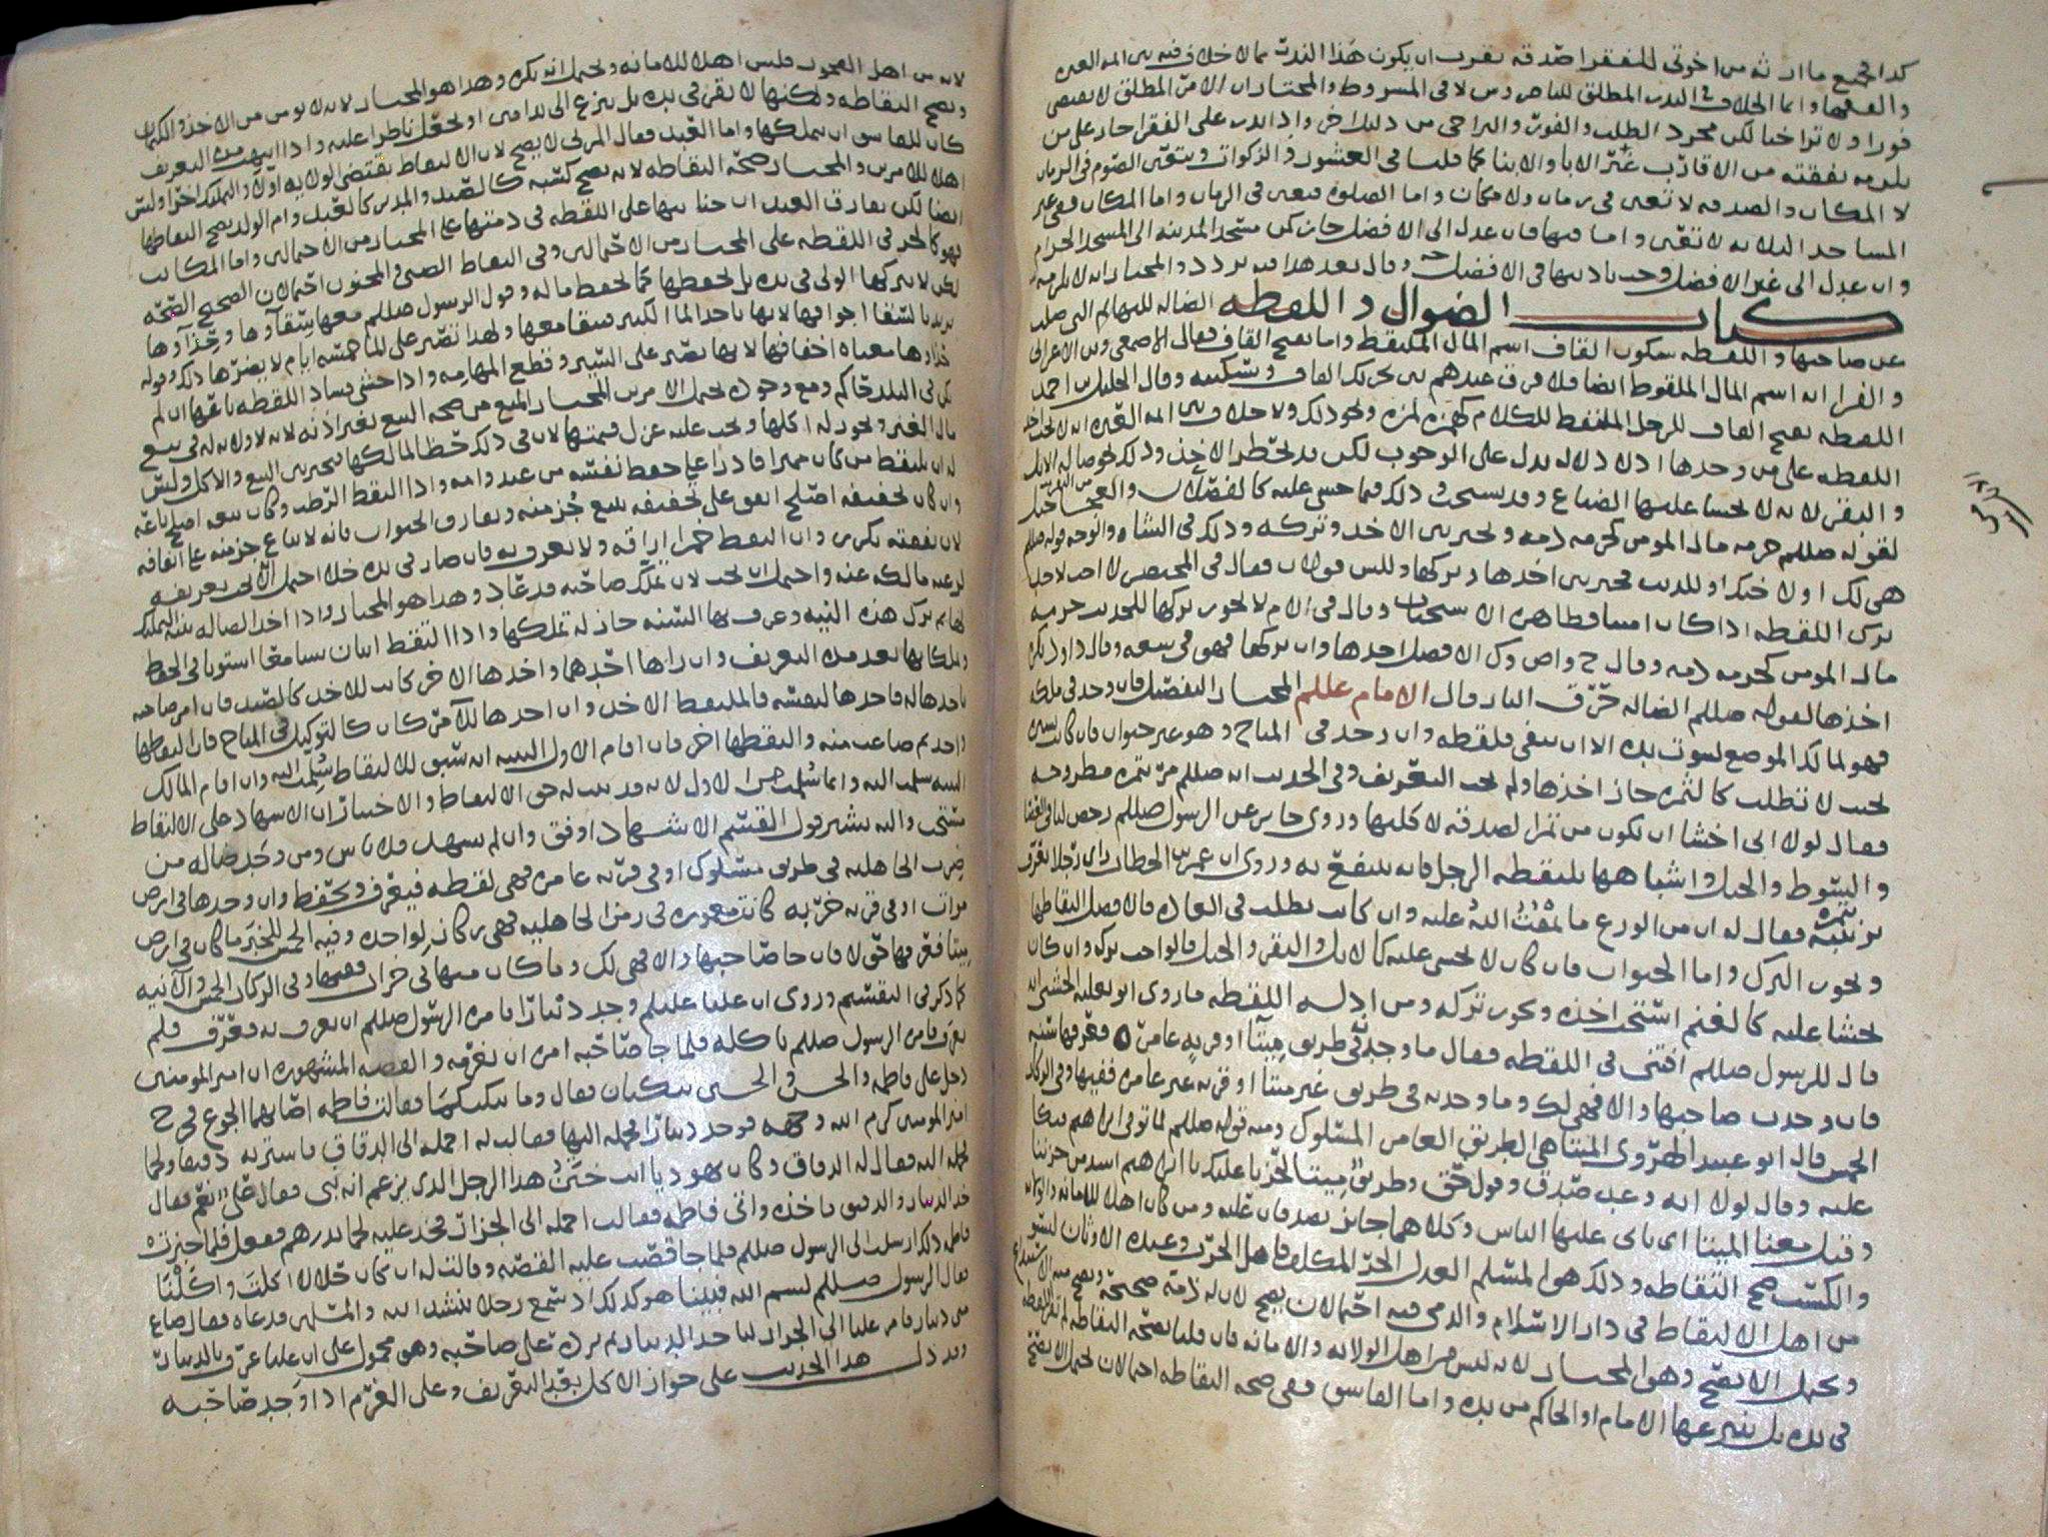 كذا جميع ما ارثه من اخوتي للفقرا صدقه يقرب ان يكون هذا النذر مما لا خلاف فيه بين ايمه العتره
والفقها وانما الخلاف في النذر المطلق للناصر وش لا في المشروط والمختار ان الامر المطلق لا يقتضي
فورا ولا تراخيا لكن مجرد الطلب والفور والتراخي من دليل اخر واذا نذر على الفقرا جاز على من
يلزمه نفقته من الاقارب غير الابا والابنا كما قلنا في العشور والزكوات ويتعين الصوم في الزمان
لا المكان والصدقه لا تعين في زمان ولا مكان واما الصلوه فتعين في الزمان واما المكان ففي غير
المساجد الثلاثه لا تتعين واما فيها فان عدل الى الافضل جاز كمن مسجد المدينه الى المسجد الحرام
وان عدل الى غير الافضل وجب تاديتها في الافضل وقال بعد هذا فيه تردد والمختار انه لا يلزمه
كتاب الضوال واللقطه الضاله للبهايم التي ضلت
عن صاحبها واللقطه بسكون القاف اسم المال الملتقط واما بفتح القاف فقال الاصمعي وبن الاعرابي
والفرا انه اسم المال الملقوط ايضا فلا فرق عندهم بين تحريك القاف وتسكينه وقال الخليل بن احمد
اللقطه بفتح القاف للرجل الملتقط للكلام كهمزه لمزه ونحو ذلك ولا خلاف بين ايمه العتره انه لا يجب اخذ
اللقطه على من وجدها اذ لا دلاله تدل على الوجوب لكن قد يحظر الاخذ وذلك نحو ضاله الابل
والبقر لانه لا يخشا عليها الضياع وقد يستحب وذلك فيما خشي عليه كالفصلان والعجاجيل
لقوله صللم حرمه مال المومن كحرمه دمه ويخير بين الاخذ وتركه وذلك في الشاه والوجه قوله صللم
هي لك او لاخيك او للذيب فخير بين اخذها وتركها وللش قولان فقال في المختصر لا احب لاحد
ترك اللقطه اذا كان امينا فظاهره الاستحباب وقال في الام لا يجوز تركها للحديث حرمه
مال المومن كحرمه دمه وقال ح واص وك الافضل اخذها وان تركها فهو في سعه وقال داود يكره
اخذها لقوله صللم الضاله حرق النار قال الامام عللم المختار التفصيل فان وجد في ملك
فهو لمالك الموضع لثبوت يده الا ان ينفي فلقطه وان وجد في المباح وهو غير حيوان فان كانت يسيره
بحيث لا تطلب كالثمره جاز اخذها ولم يجب التعريف وفي الحديث انه صللم مر بتمره مطروحه
فقال لولا اني اخشا ان تكون من تمر الصدقه لاكلتها وروى جابر عن الرسول صللم رخص لنا في العصا
والسوط والحبل واشباهها يلتقطه الرجل فانه ينتفع به وروي ان عمر بن الخطاب راى رجلا يعرف
بزبيبه فقال له ان من الورع ما يمقت الله عليه وان كانت تطلب في العاده فالافضل التقاطها
ويجوز الترك واما الحيوان فان كان لا يخش عليه كالابل والبقر والخيل فالواجب تركه وان كان
يخشا عليه كالغنم استحب اخذه ويجوز تركه ومن ادله اللقطه ما روى ابو ثعلبه الخشني انه
قال للرسول صللم افتني في اللقطه فقال ما وجد في طريق ميتآ او قريه عامره فعرفها سنه
فان وجدت صاحبها والا فهي لك وما وجد به في طريق غير ميتا او قريه غير عامره ففيها وفي الركاز
الخمس قال ابو عبيد الهروي الميتا هي الطريق العامر المسلوك ومنه قوله صللم لما توفي ابراهيم فبكا
عليه وقال لولا انه وعد صدق وقول حق وطريق ميتا لحزنا عليك يا ابراهيم اشد من حزننا
وقيل معنا الميتا اي ياتي عليها الناس وكلاهما جايز يصدقان عليه ومن كان اهلا للامانه والولايه
والكسب صح التقاطه وذلك هو المسلم العدل الحر المكلف فاهل الحرب وعبده الاوثان ليسو
من اهل الالتقاط في دار الاسلام والذمي فيه احتمالان يصح لان له ذمه صحيحه ويصح منه الاستيداع
ويحتمل الا يصح وهو المختار لانه ليس من اهل الولايه والامانه فان قلنا بصحه التقاطه لم تقر اللقطه
في يده بل ينتزعها الامام او الحاكم من يده واما الفاسق ففي صحه التقاطه احتمالان يحتمل الا يصح
لانه من اهل الفجور فليس اهلا للامانه ويحتمل انه يكره وهذا هو المختار لانه لا يومن من الاخذ والكتمان
ويصح التقاطه ولكنها لا تقر في يده بل ينزع الى يد امين او يجعل ناظرا عليه واذا انتهت مده التعريف
كان للفاسق ان يتملكها واما العبد فقال المزني لا يصح لان الالتقاط يقتضي الولايه اولا والتملك اخرا وليس
اهلا للامرين والمختار صحه التقاطه لانه يصح كسبه كالصيد والمدبر كالعبد وام الولد يصح التقاطها
ايضا لكن يفارق العبد ان جنايتها على اللقطه في ذمتها على المختار من الاحتمالين واما المكاتب
فهو كالحر في اللقطه على المختار من الاحتمالين وفي التقاط الصبي والمجنون احتمالان الصحيح الصحه
لكن لا يتركها الولي في يده بل يحفظها كما يحفظ ماله وقول الرسول صللم معها سقآوها وحذآوها
يريد بالسقا اجوافها لانها تاخذ الما الكثير فيبقا معها ولهذا تصبر على الما خمسه ايام لا يضرها ذلك وقوله
حذاوها معناه اخفافها لانها تصبر على السير وقطع المهامه واذا خشي فساد اللقطه باعها ان لم
يكن في البلد حاكم ومع وجوده يحتمل الامرين المختار المنع من صحه البيع بغير اذنه لانه لا ولايه له في بيع
مال الغير ويجوز له اكلها ويجب عليه عزل قيمتها لان في ذلك حظا لمالكها فيخير بين البيع والاكل وليس
له ان يلتقط من كان مميزا قادرا على حفظ نفسه من عبد وامه واذا التقط الرطب وكان بيعه اصلح باعه
وان كان تجفيفه اصلح انفق على تجفيفه ببيع جز منه ويفارق الحيوان فانه لا يباع جز منه على انفاقه
لان نفقته تكرر وان التقط خمرا اراقه ولا يعرف به فان صار في يده خلا احتمل الا يجب تعريفه
لرغبه مالكه عنه واحتمل ان يجب لان ملك صاحبه قد عاد وهذا هو المختار واذا اخذ الضاله بنيه التملك
ثم ترك هذه النيه وعرف بها السنه جاز له تملكها واذا التقط اثنان شيا معا استويا في الحفظ
وتملكا بها بعد مده التعريف وان راها احدهما واخذها الاخر كانت للاخذ كالصيد فان امر صاحبه
باخذها له فاخذها لنفسه فالملتقط الاخذ وان اخذها للآمر كان كالتوكيل في المباح فان التقطها
واحد ثم ضاعت منه والتقطها اخر فان اقام الاول البينه انه سبق للالتقاط سلمت اليه وان اقام المالك
البينه سلمت اليه وانما سلمت من الاول لانه قد ثبت له حق الالتقاط والاختيار ان الاشهاد على الالتقاط
مستحب واليه يشير قول القسم الاشهاد اوفق وان لم يشهد فلا باس ومن وجد ضاله من
ضرب الجاهليه في طريق مسلوك او في قريه عامره فهي لقطه فيعرف ويحفظ وان وجدها في ارض
موات او في قريه خربه كانت معموره في زمن الجاهليه فهي ركاز لواجده وفيه الخمس للخبر ما كان في ارض
ميتا فعرفها حولا فان جا صاحبها والا فهي لك وما كان منها في خراب ففيها وفي الركاز الخمس والآنيه
كما ذكر في التقسيم وروي ان عليا عليلم وجد دينارا فامره الرسول صللم ان يعرف به فعرف فلم
يعرف فامره الرسول صللم باكله فلما جا صاحبه امره ان يغرمه والقصه المشهوره ان امير المومنين
دخل على فاطمه والحسن والحسين يبكيان فقال وما يبكيكما فقالت فاطمه اصابهما الجوع فخرج
امير المومنين كرم الله وجهه فوجد دينارا فحمله اليها فقالت له احمله الى الدقاق فاشتر به دقيقا ولحما
فحمله اليه فقال له الدقاق وكان يهوديا انت ختن هذا الرجل الذي يزعم انه نبي فقال علي نعم فقال
خذ الدينار والدقيق فاخذه واتى فاطمه فقالت احمله الى الجزار فخذ عليه لحما بدرهم ففعل فلما خبزت
فاطمه ذلك ارسلت الى الرسول صللم فلما جا قصت عليه القصه وقالت له ان كان حلالا اكلت واكلنا
فقال الرسول صللم بسم الله فبينا هو كذلك اذ سمع رجلا ينشد الله والمشهر فدعاه فقال ضاع
مني دينار فامر عليا الى الجزار لياخذ الدينار ثم يرده على صاحبه وهو محمول على ان عليا عرف بالدينار
وقد دل هذا الحديث على جواز الاكل بقدر التعريف وعلى الغرم اذا وجد صاحبه